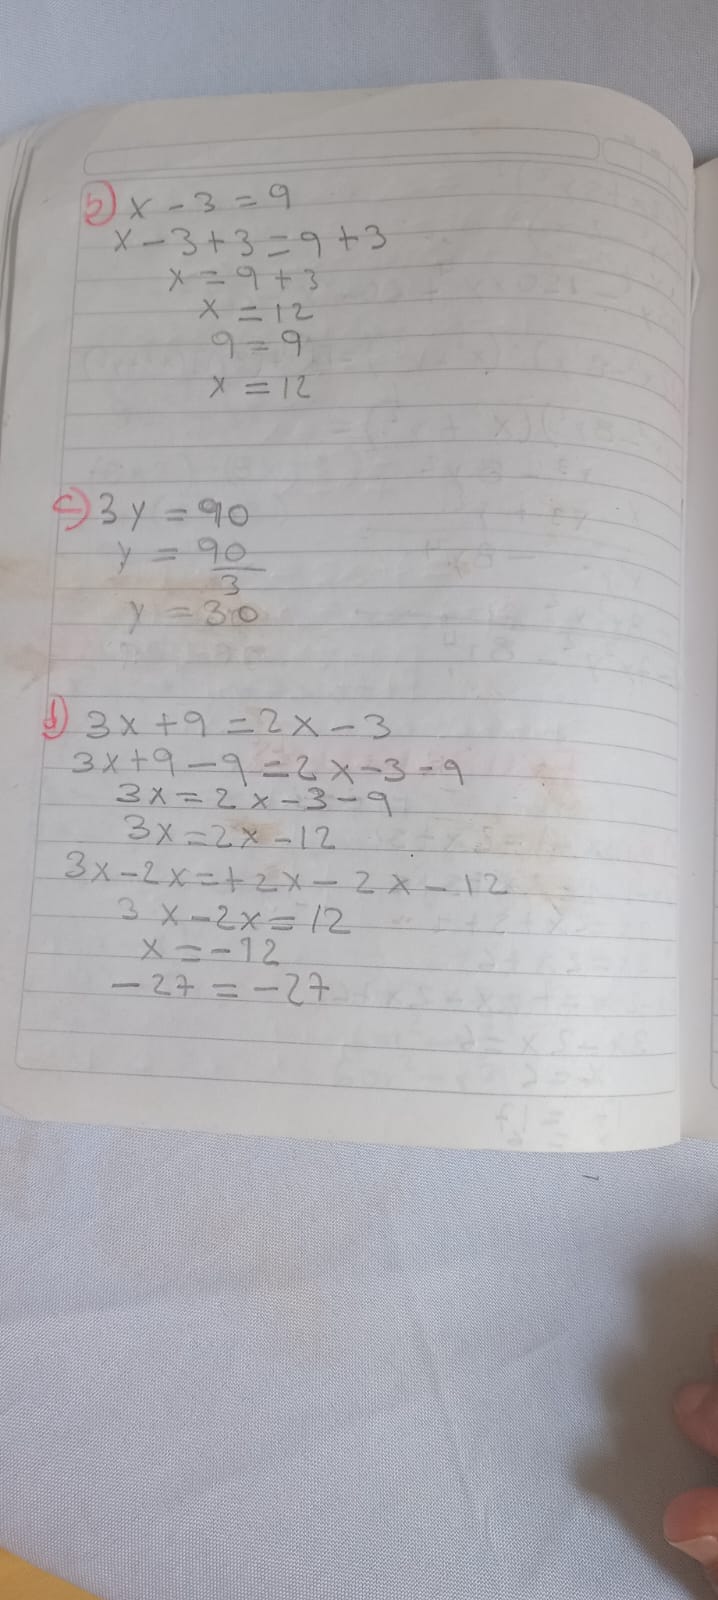 b) x - 3 = 9
x - 3 + 3 = 9 + 3
x = 9 + 3
x = 12
9 = 9
x = 12
c) 3y = 90
y = 90/3
y = 30
d) 3x + 9 = 2x - 3
3x + 9 - 9 = 2x - 3 - 9
3x = 2x - 3 - 9
3x = 2x - 12
3x - 2x = +2x - 2x - 12
3x - 2x = 12
x = -12
-27 = -27